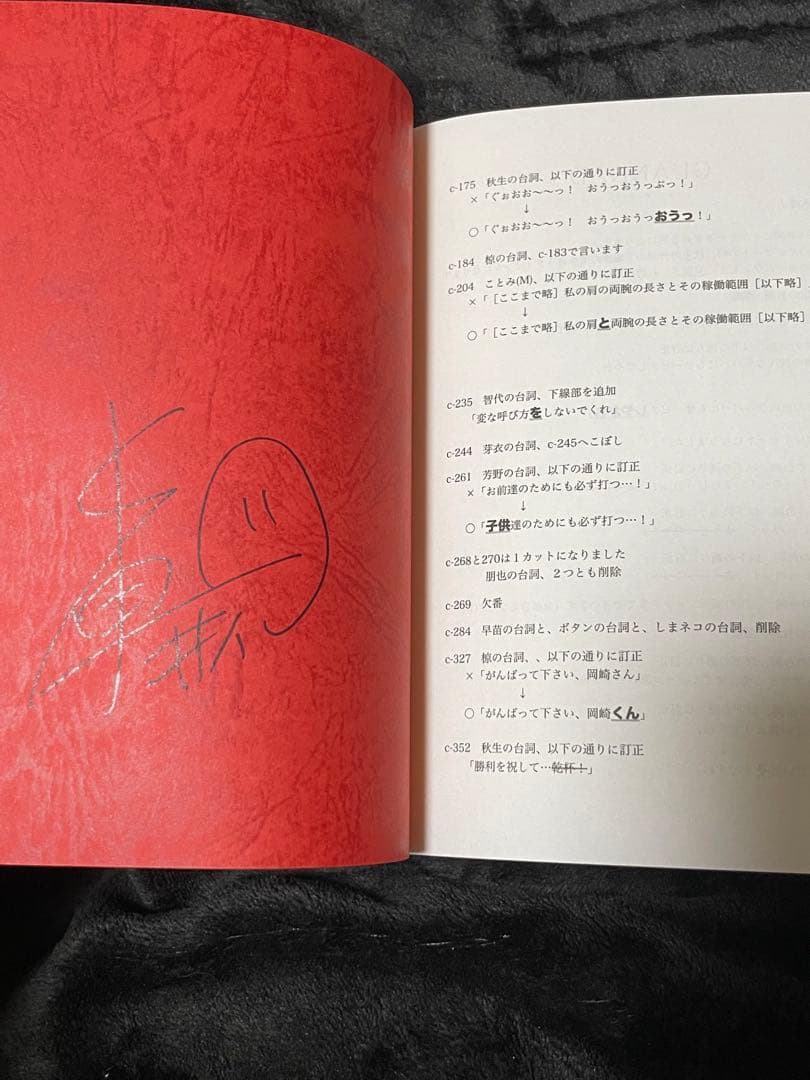 c-175 秋生の台詞、以下の通りに訂正
×「ぐぉおお〜〜っ! おうっおうっぷっ!」
↓
○「ぐぉおお〜〜っ! おうっおうっおうっ!」
c-184 椋の台詞、c-183で言います
c-204 ことみ(M)、以下の通りに訂正
×「[ここまで略]私の肩の両腕の長さとその稼働範囲[以下略]
↓
○「[ここまで略]私の肩と両腕の長さとその稼働範囲[以下略]
c-235 智代の台詞、下線部を追加
「変な呼び方をしないでくれ」
c-244 芽衣の台詞、c-245へこぼし
c-261 芳野の台詞、以下の通りに訂正
×「お前達のためにも必ず打つ…!」
↓
○「子供達のためにも必ず打つ…!」
c-268と270は1カットになりました
朋也の台詞、2つとも削除
c-269 欠番
c-284 早苗の台詞と、ボタンの台詞と、しまネコの台詞、削除
c-327 椋の台詞、、以下の通りに訂正
×「がんばって下さい、岡崎さん」
↓
○「がんばって下さい、岡崎くん」
c-352 秋生の台詞、以下の通りに訂正
「勝利を祝して…乾杯!」